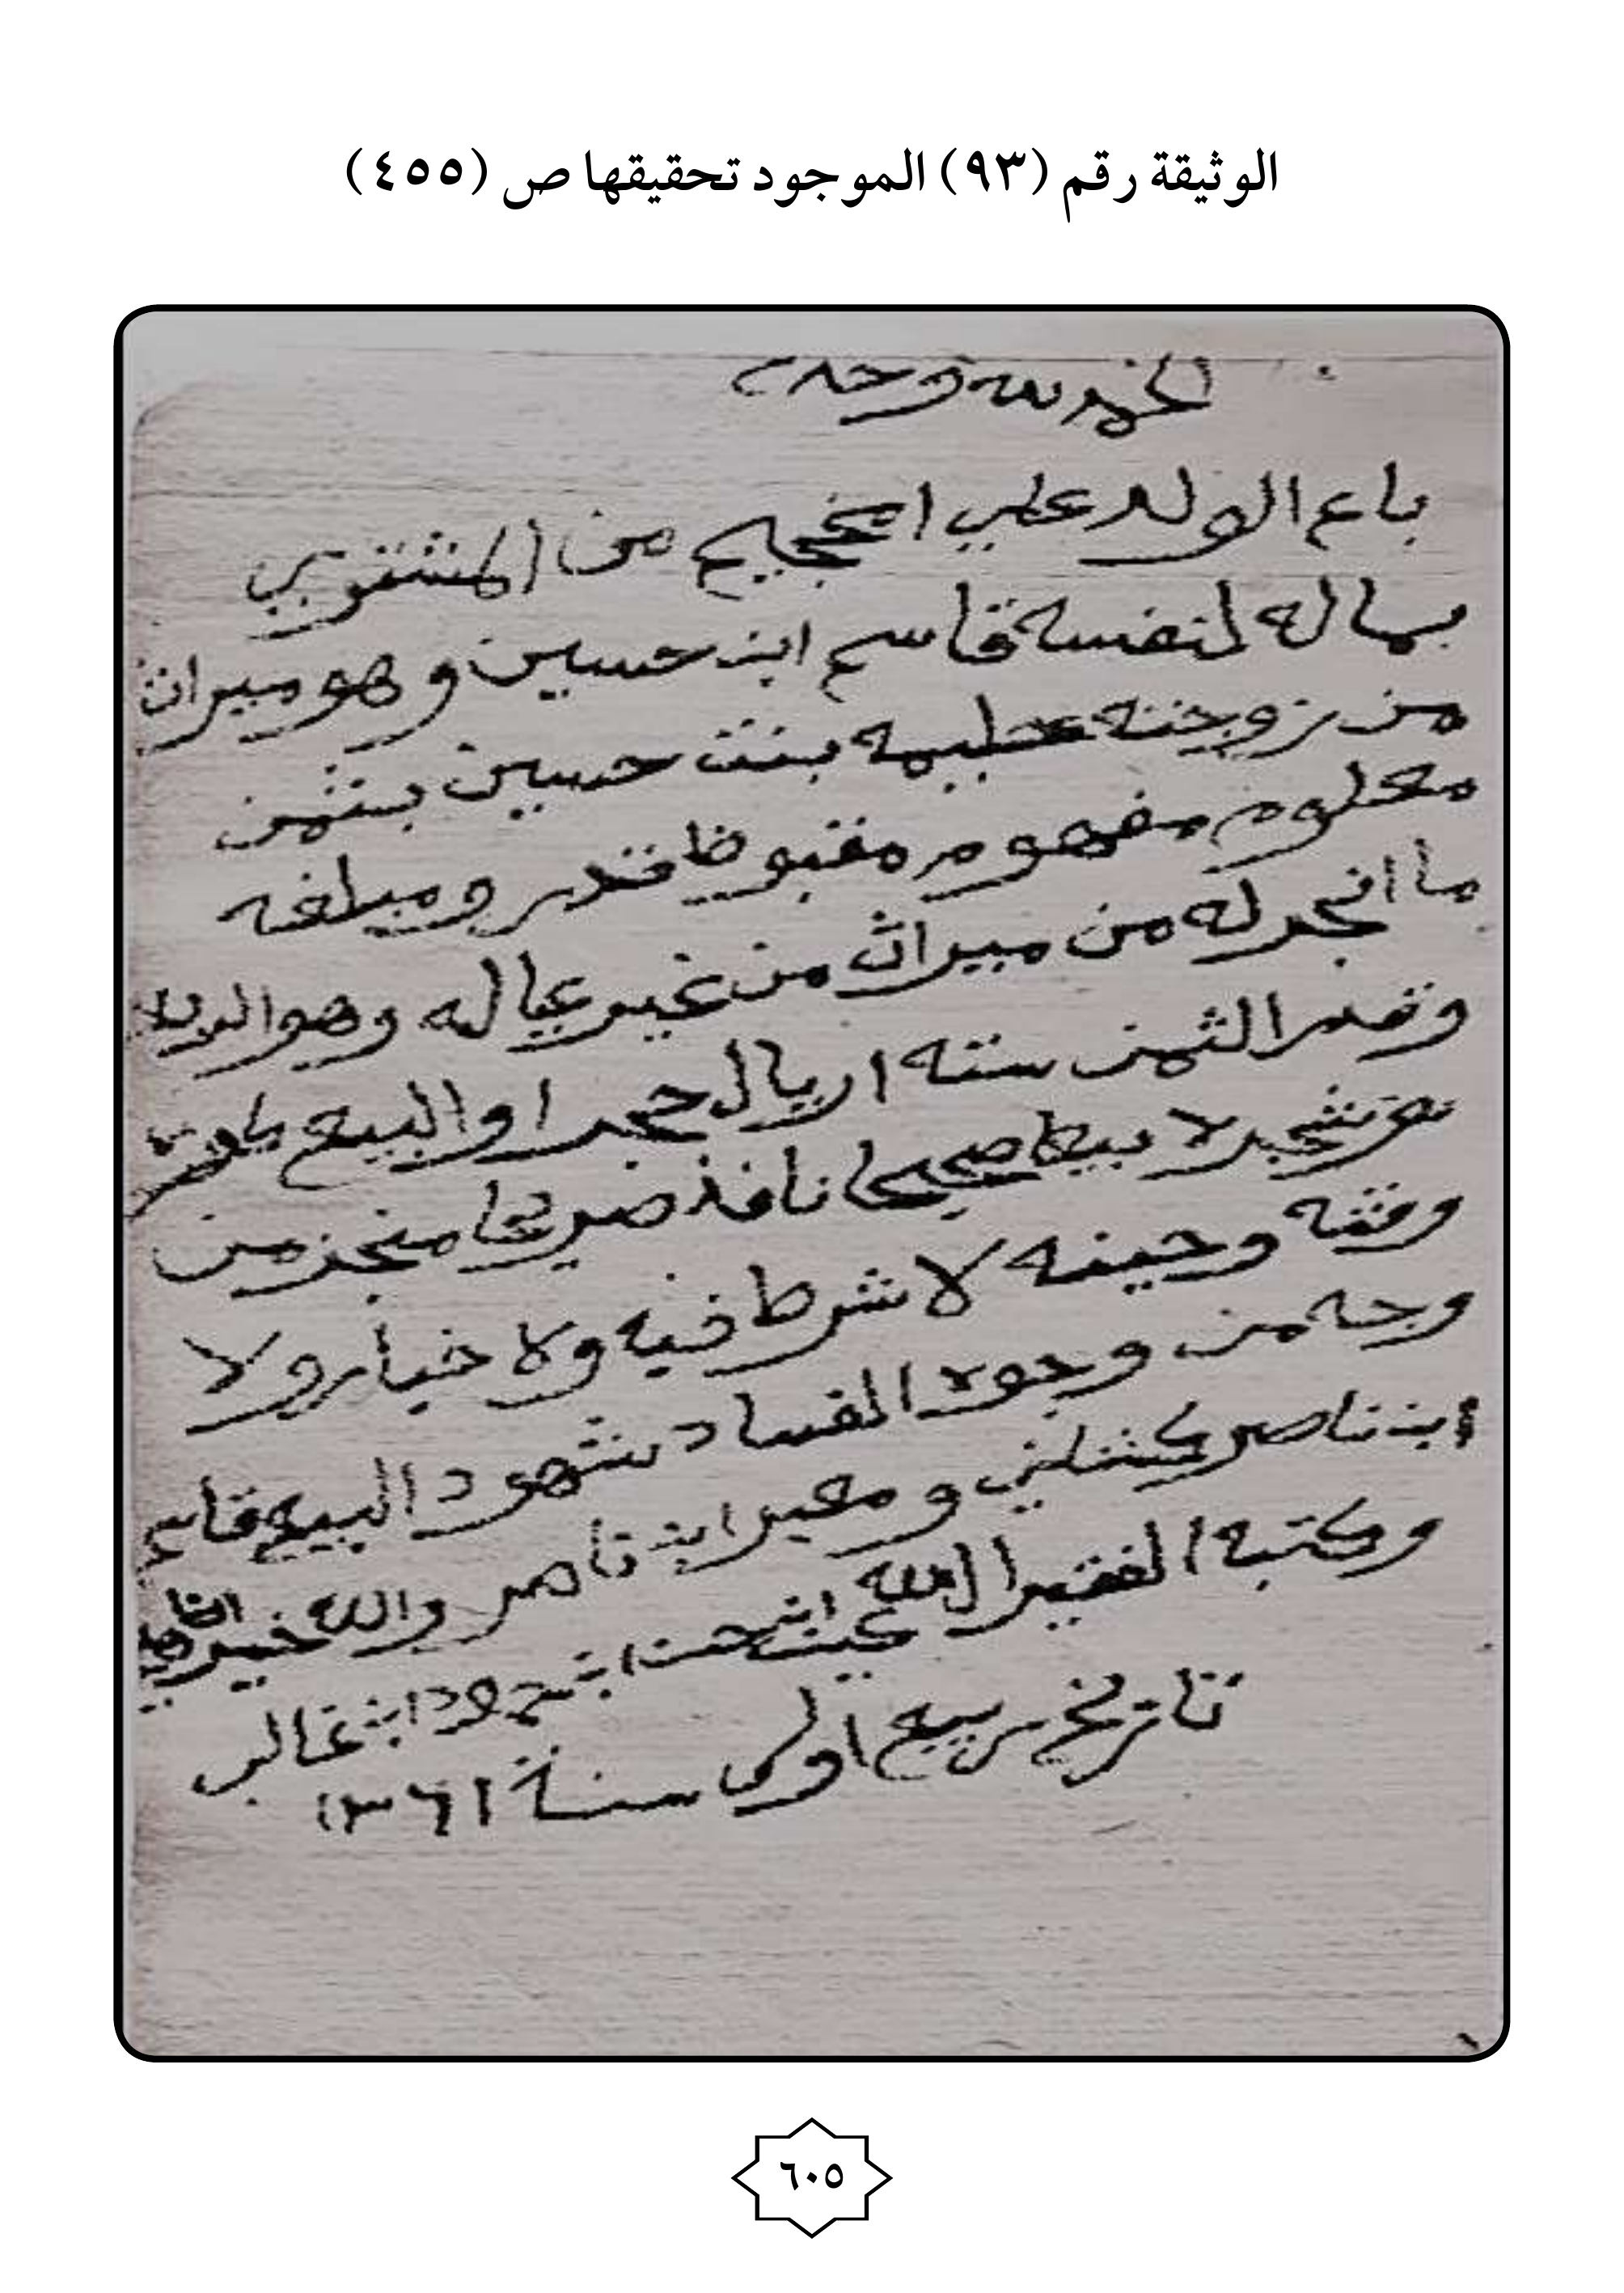 الوثيقة رقم (٩٣) الموجود تحقيقها ص (٤٥٥)
الحمد لله وحده
باع الولد علي من المشتري
بماله لنفسه قاسم ابن حسين وهو ميراث
من زوجته بنت حسين بثمن
معلوم مفهوم مقبوظ قدر ومبلغه
ما انجر له من ميراث من غير عياله وهو
وقدر الثمن سته اريال حجر او البيع
بيعا صحيحا نافذ صريحا منجز من
وقته وحينه لا شرط فيه ولا خيار ولا
وجه من وجوه الفساد شهود البيع قاسم
ابن ناصر ومعير ابن ناصر والله خير
وكتبه الفقير الى الله ابن غالب
تاريخ ربيع اولى سنة ١٣٦١
٦٠٥